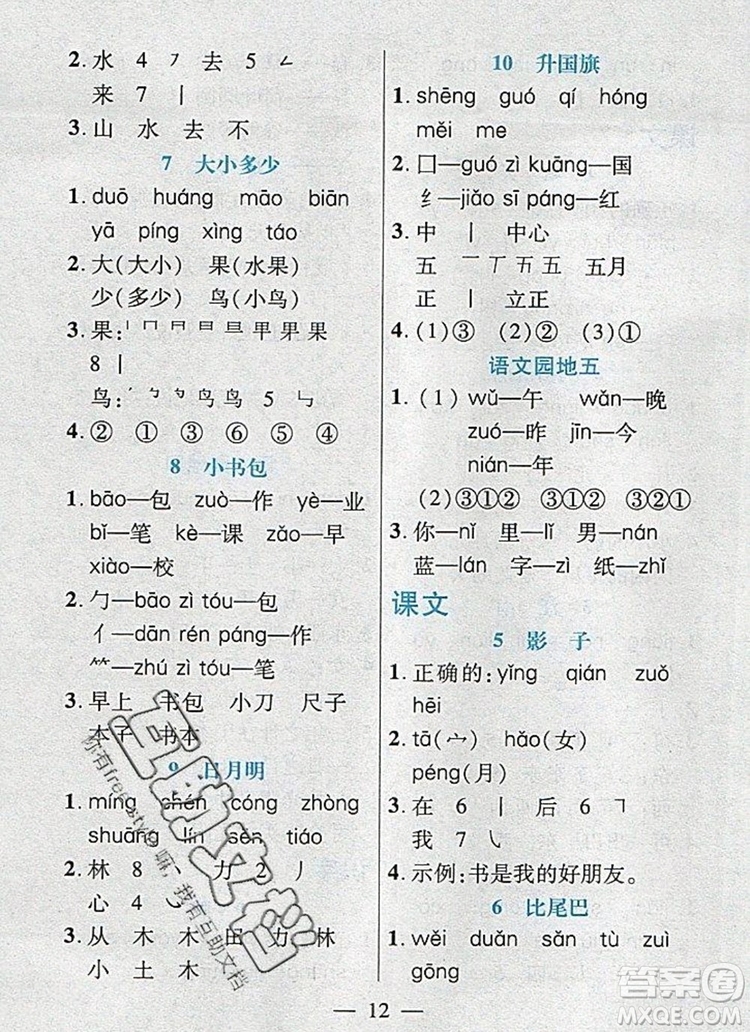 2. 水 4 ㇇ 去 5 ㄥ
来 7 丨
3. 山 水 去 不
7 大小多少
1. duō huáng māo biān
yā píng xìng táo
2. 大(大小) 果(水果)
少(多少) 鸟(小鸟)
3. 果: 丨 冂 日 旦 早 果 果
8 丨
鸟: 鸟 鸟 5 ㄣ
4. ② ① ③ ⑥ ⑤ ④
8 小书包
1. bāo—包 zuò—作 yè—业
bǐ—笔 kè—课 zǎo—早
xiào—校
2. 勹—bāo zì tóu—包
亻—dān rén páng—作
⺮—zhú zì tóu—笔
3. 早上 书包 小刀 尺子
本子 书本
9 日月明
1. míng chén cóng zhòng
shuāng lín sēn tiáo
2. 林 8 力 2 丿
心 4
3. 从 木 木 田 力 林
小 土 木
10 升国旗
1. shēng guó qí hóng
měi me
2. 囗—guó zì kuāng—国
纟—jiǎo sī páng—红
3. 中 丨 中心
五 一 丅 五 五 五月
正 丨 立正
4. (1)③ (2)② (3)①
语文园地五
1. (1) wǔ—午 wǎn—晚
zuó—昨 jīn—今
nián—年
(2) ③①② ③①②
3. 你—nǐ 里—lǐ 男—nán
蓝—lán 字—zì 纸—zhǐ
课文
5 影 子
1. 正确的: yǐng qián zuǒ
hēi
2. tā(宀) hǎo(女)
péng(月)
3. 在 6 丨 后 6 ㇕
我 7 ㇂
4. 示例: 书是我的好朋友。
6 比尾巴
1. wěi duǎn sǎn tù zuì
gōng
— 12 —
互助文档
你有freestyle嘛,我有互助文档
答案圈
MXQE.COM